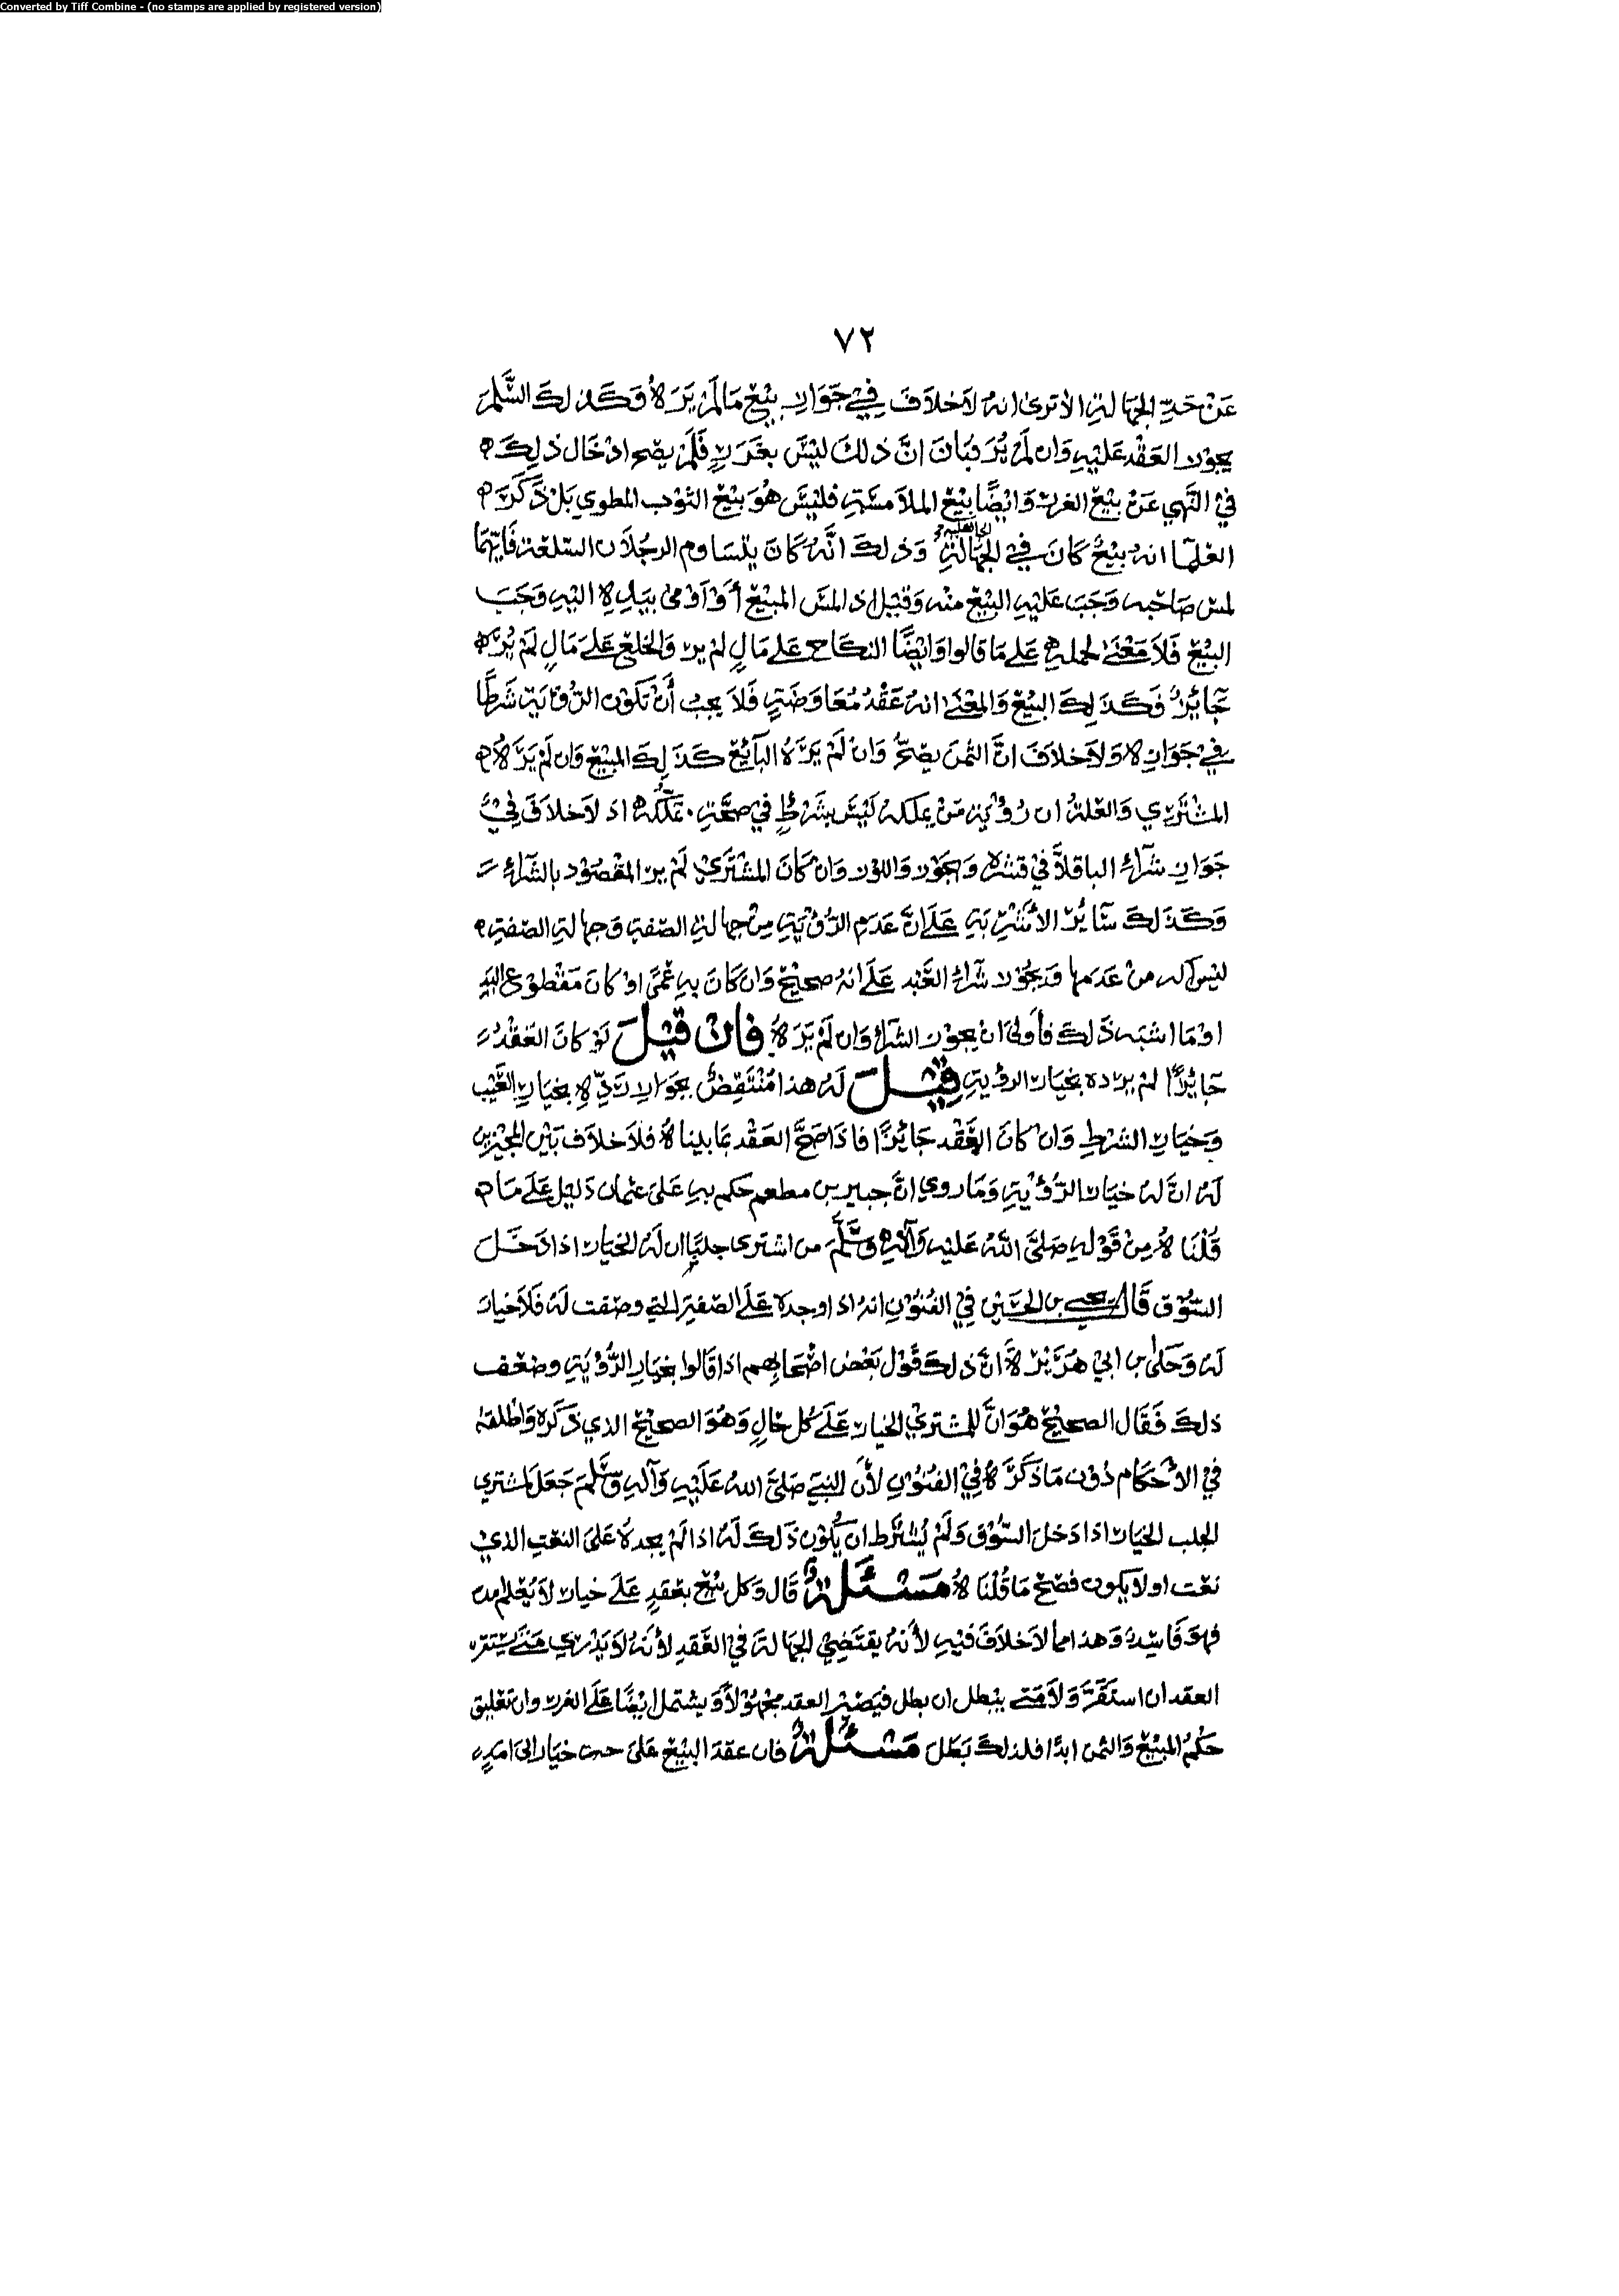 Converted by Tiff Combine - (no stamps are applied by registered version)
٧٢
عَنْ حَدِّ الجهالة الا ترى انه لا خلاف في جَوَاز بيْع مَا لَمْ يَرَهُ وَكَذلك السَّلم
يجوز العَقْد عَليْهِ وَان لَمْ يُرَ فبَان انَّ ذلك ليْسَ بغَرَرٍ فَلَمْ يصِح ادْخَال ذلِكَ
في النَّهي عَنْ بيْع الغرر وَايْضًا بيْع الملامسَةِ فليْسَ هُوَ بَيْع الثوب المطوي بَلْ ذَكَرَ
العُلمَا انه بيْعٌ كَانَ في الجَهَالَةِ الجاهليه وَذلكَ انَّهُ كَانَ يتسَاوم الرجُلان السّلعَة فَايّهمَا
لمسَ صَاحبه وَجَبَ عَليْهِ البيْع منْه وَقيْل اذا لمسَ المبيْع أوْ اوْمى بيَدِهِ اليْهِ وَجَبَ
البيْع فَلاَ مَعْنى لحملهِ عَلى مَا قالوا وَايْضًا النكاح عَلى مَالٍ لم ير وَالخلع عَلى مَالٍ لَمْ يُرَ
جَائزٌ فَكَذَلِكَ البيْع وَالمعْنى انه عَقْدُ مُعَاوَضَةٍ فَلاَ يجب أَنْ تَكون الرُّؤيَة شَرطًا
في جَوَازِهِ وَلاَ خلافَ انَّ الثمن يصِحُّ وَانْ لَمْ يَرَهُ البَائِع كَذَلِكَ المبيْع وَان لَمْ يَرَهُ
المشْتَرِي وَالعلةُ ان رُؤْيَة مَنْ يملكه لَيْسَ بشَرْطٍ في صحَّةِ تملّكه اذ لاَ خلافَ فِي
جَوَاز شرَآءِ الباقلاَّ في قشره وَالجَوْز وَاللوْز وَانْ كَانَ المشْتَرِي لَمْ يرَ المقْصُوْد بالشرَآءِ
وَكَذَلِكَ سَآئِر الأَشْرِبَةِ عَلى انَّ عَدَم الرُّؤْيَةِ مِنْ جهالةِ الصّفةِ وَجهالةِ الصّفةِ
ليْسَ اكبر منْ عَدَمِهَا وَيجُوْز شرآءُ العَبْد عَلى انه صحِيْح وَان كَانَ بهِ عَمًى اوْ كانَ مَقْطوْع اليَدِ
اوْ مَا اشبَه ذَلكَ فأوْلى انْ يجوْز الشرَاءُ وَان لَمْ يَرَهُ فان قيل لَوْ كانَ العَقْدُ
جَائزًا لم يردّه بخيَار الرؤية قِيْلَ لَهُ هذا مُنْتَقِضٌ بجوَاز رَدِّهِ بخيَارِ العَيْب
وَخيَار الشرطِ وَانْ كَانَ العَقْد جَائزًا فاذَا صَحَّ العَقْد بمَا بيناهُ فلاَ خلاَف بَيْن المجيْزين
لَهُ انَّ لهُ خيَار الرُّؤْيَةِ وَمَا روي انَّ جبير بن مطعم حكم بهِ عَلى عثمان دَليل عَلى مَا
قُلْنَاهُ مِنْ قَوْلهِ صَلَّى اللهُ عَليْهِ وَآلِهِ وَسَلَّمَ من اشترى جلبًا ان لَهُ الخيَار اذا دَخَلَ
السّوْق قَالَ يحيى بن الحسَيْن في الفُنُوْنِ انه اذا وجده عَلى الصّفةِ التي وصفت لَهُ فَلاَ خيار
لَهُ وَحَكى بن ابي هُرَيْرَةَ أنَّ ذلكَ قَوْل بَعْض اصْحَابِهم اذا قَالوا بخيَارِ الرُّؤْيَةِ وضعف
ذلكَ فَقَال الصحيْح هُوَ انَّ للمشتري الخيار عَلى كُل حَالٍ وَهُوَ الصحيْح الذي ذَكَرَه وَاطْلقهُ
في الاحْكَام دُوْن مَا ذَكَرَهُ في الفُنُوْنِ لأن النبيَ صَلَّى اللهُ عَلَيْهِ وَآلهِ وَسَلَّمَ جَعَلَ لمشتري
الجلب الخيَار اذا دَخلَ السّوْق وَلَمْ يُشتَرط ان يَّكوْن ذَلكَ لَهُ اذا لَمْ يجدهُ عَلى النعْتِ الذي
نعت اولا يكون فصَحَّ مَا قُلْنَاهُ مَسْئَلَةٌ قَال وَكل بيْع بعقدٍ عَلى خيار لاَ يُعْلم امد
فهوَ فَاسِدٌ وَهذا مما لا خلافَ فيْهِ لأنهُ يقتَضِي الجهالةَ في العَقدِ لأنه لا يَدْري مَتى يستقر
العقد ان استَقَرَّ وَلاَ مَتى يبْطل ان بطل فيَصيْر العقد مجهوْلاً وَيشتمل ايضًا عَلى الغرر وان تعْليق
حكم المبيْع وَالثمن ابدًا فلذلكَ بَطلَ مَسْئلةٌ فان عقدَ البيْع عَلى خيَار الى امَدٍ